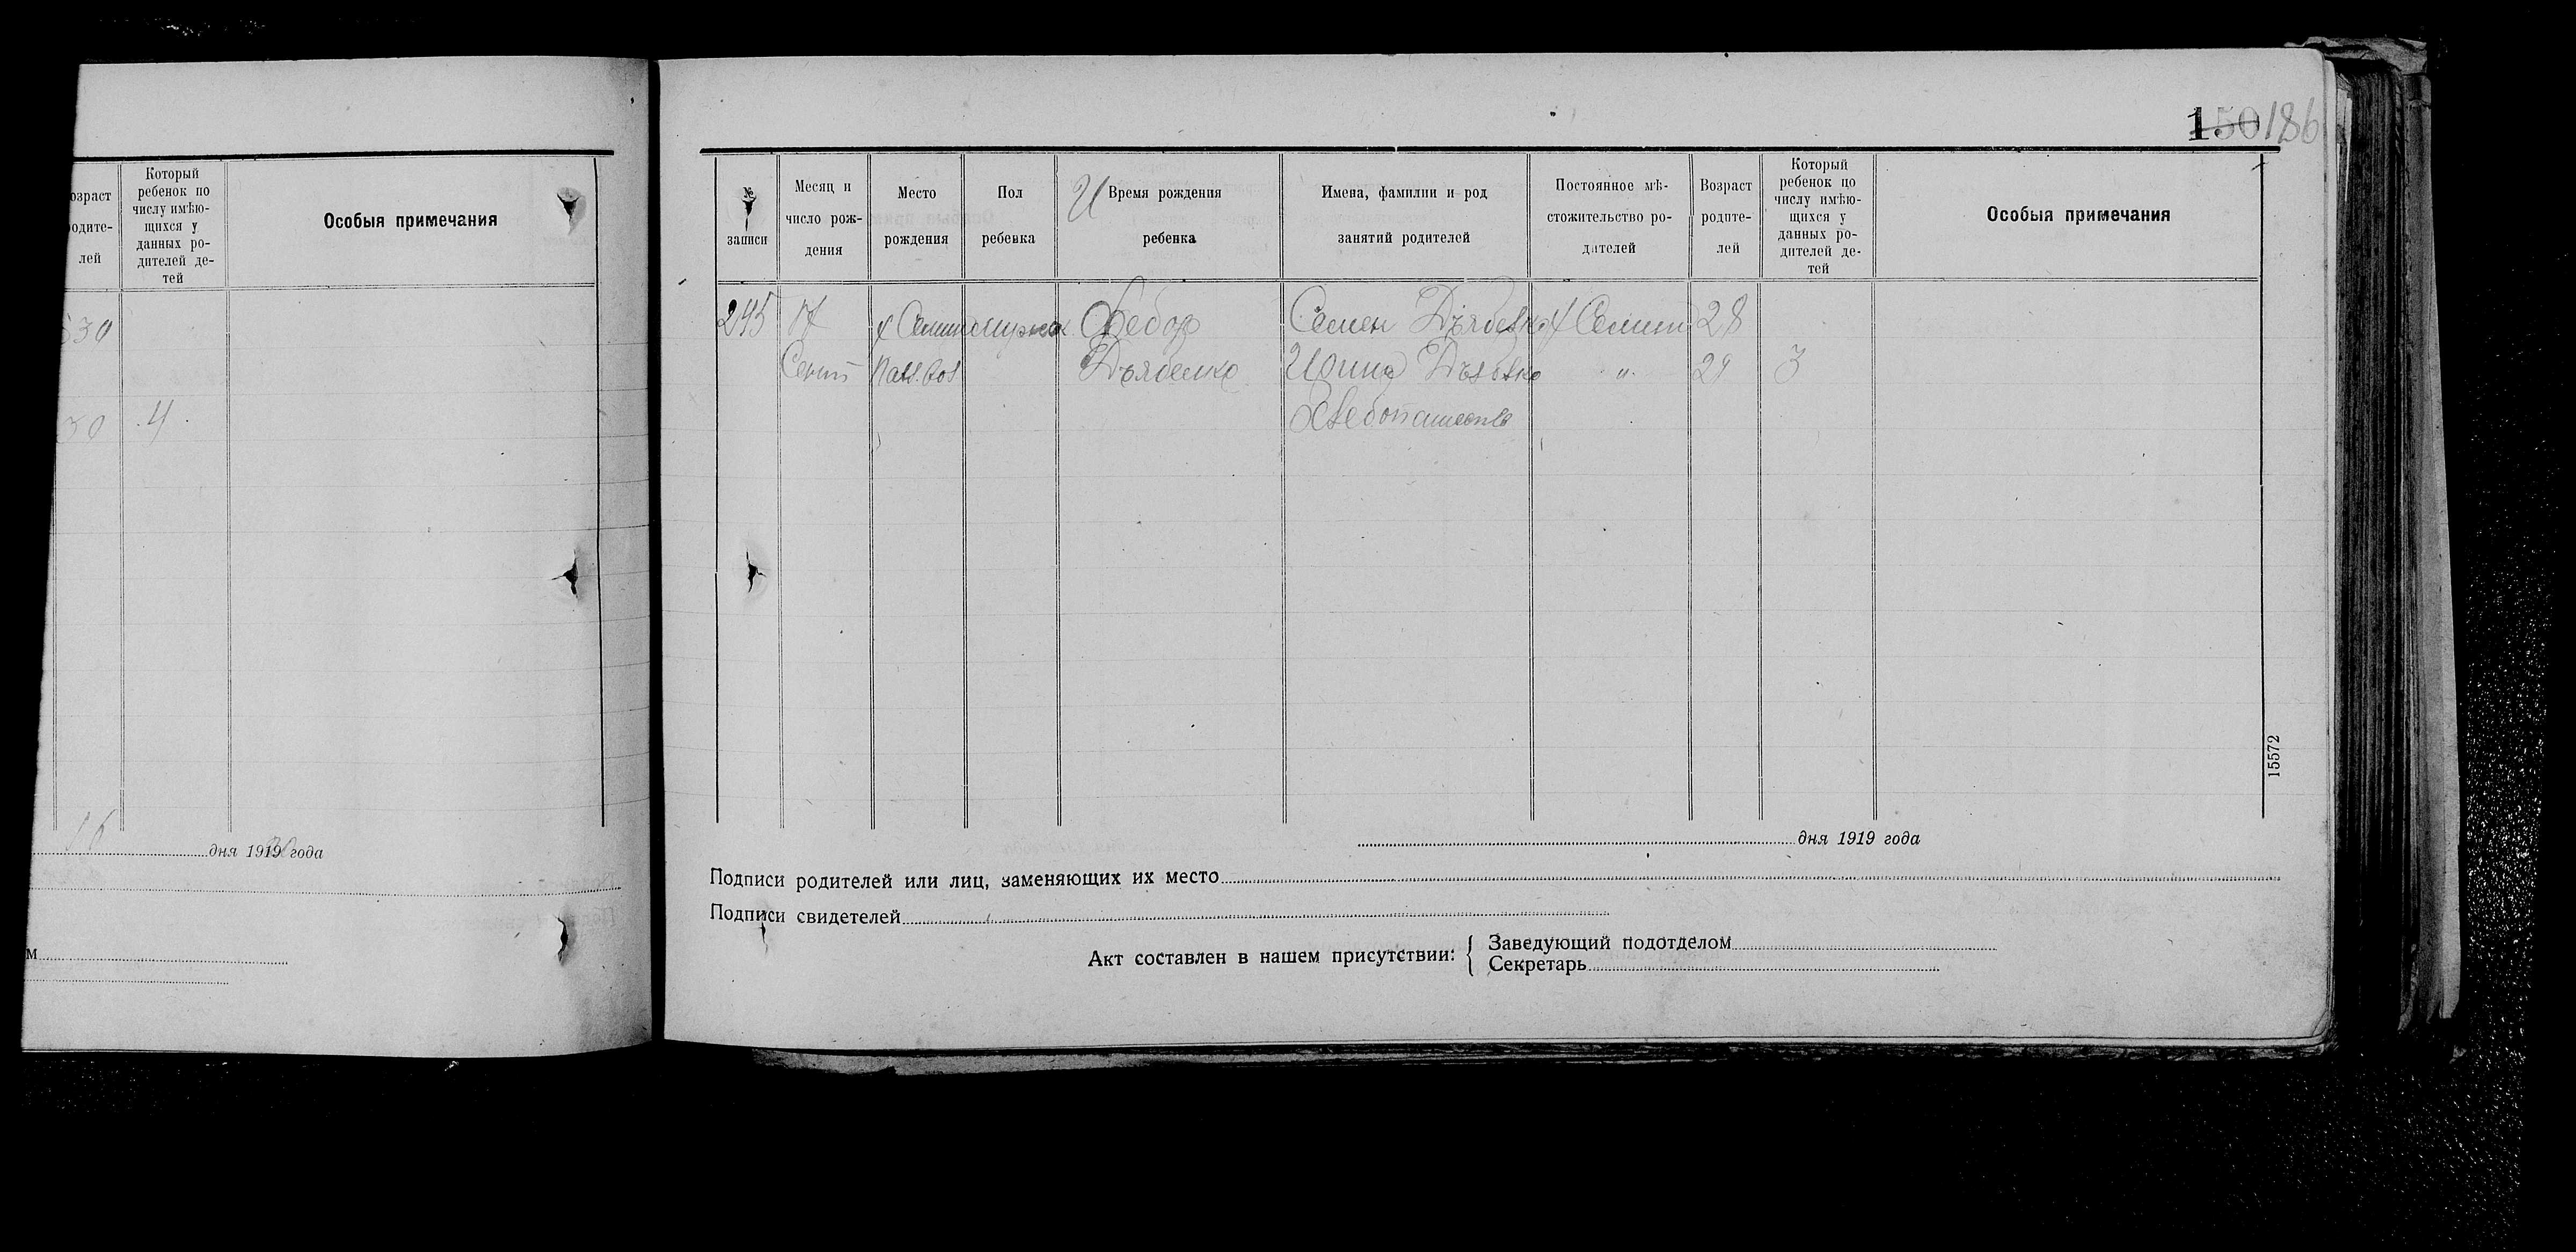 озраст
родите-
лей
Который
ребенок по
числу имѣю-
щихся у
данных ро-
дителей де-
тей
Особыя примечания
30
30 4
16
дня 1919 года
м
150 186
№
записи
Месяц и
число рож-
дения
Место
рождения
Пол
ребенка
И Время рождения
ребенка
Имена, фамилии и род
занятий родителей
Постоянное мѣ-
стожительство ро-
дителей
Возраст
родите-
лей
Который
ребенок по
числу имѣю-
щихся у
данных ро-
дителей де-
тей
Особыя примечания
245 17 Федор Семен 28
29 3
Хлебопашество
15572
дня 1919 года
Подписи родителей или лиц, заменяющих их место
Подписи свидетелей
Акт составлен в нашем присутствии:
Заведующий подотделом
Секретарь